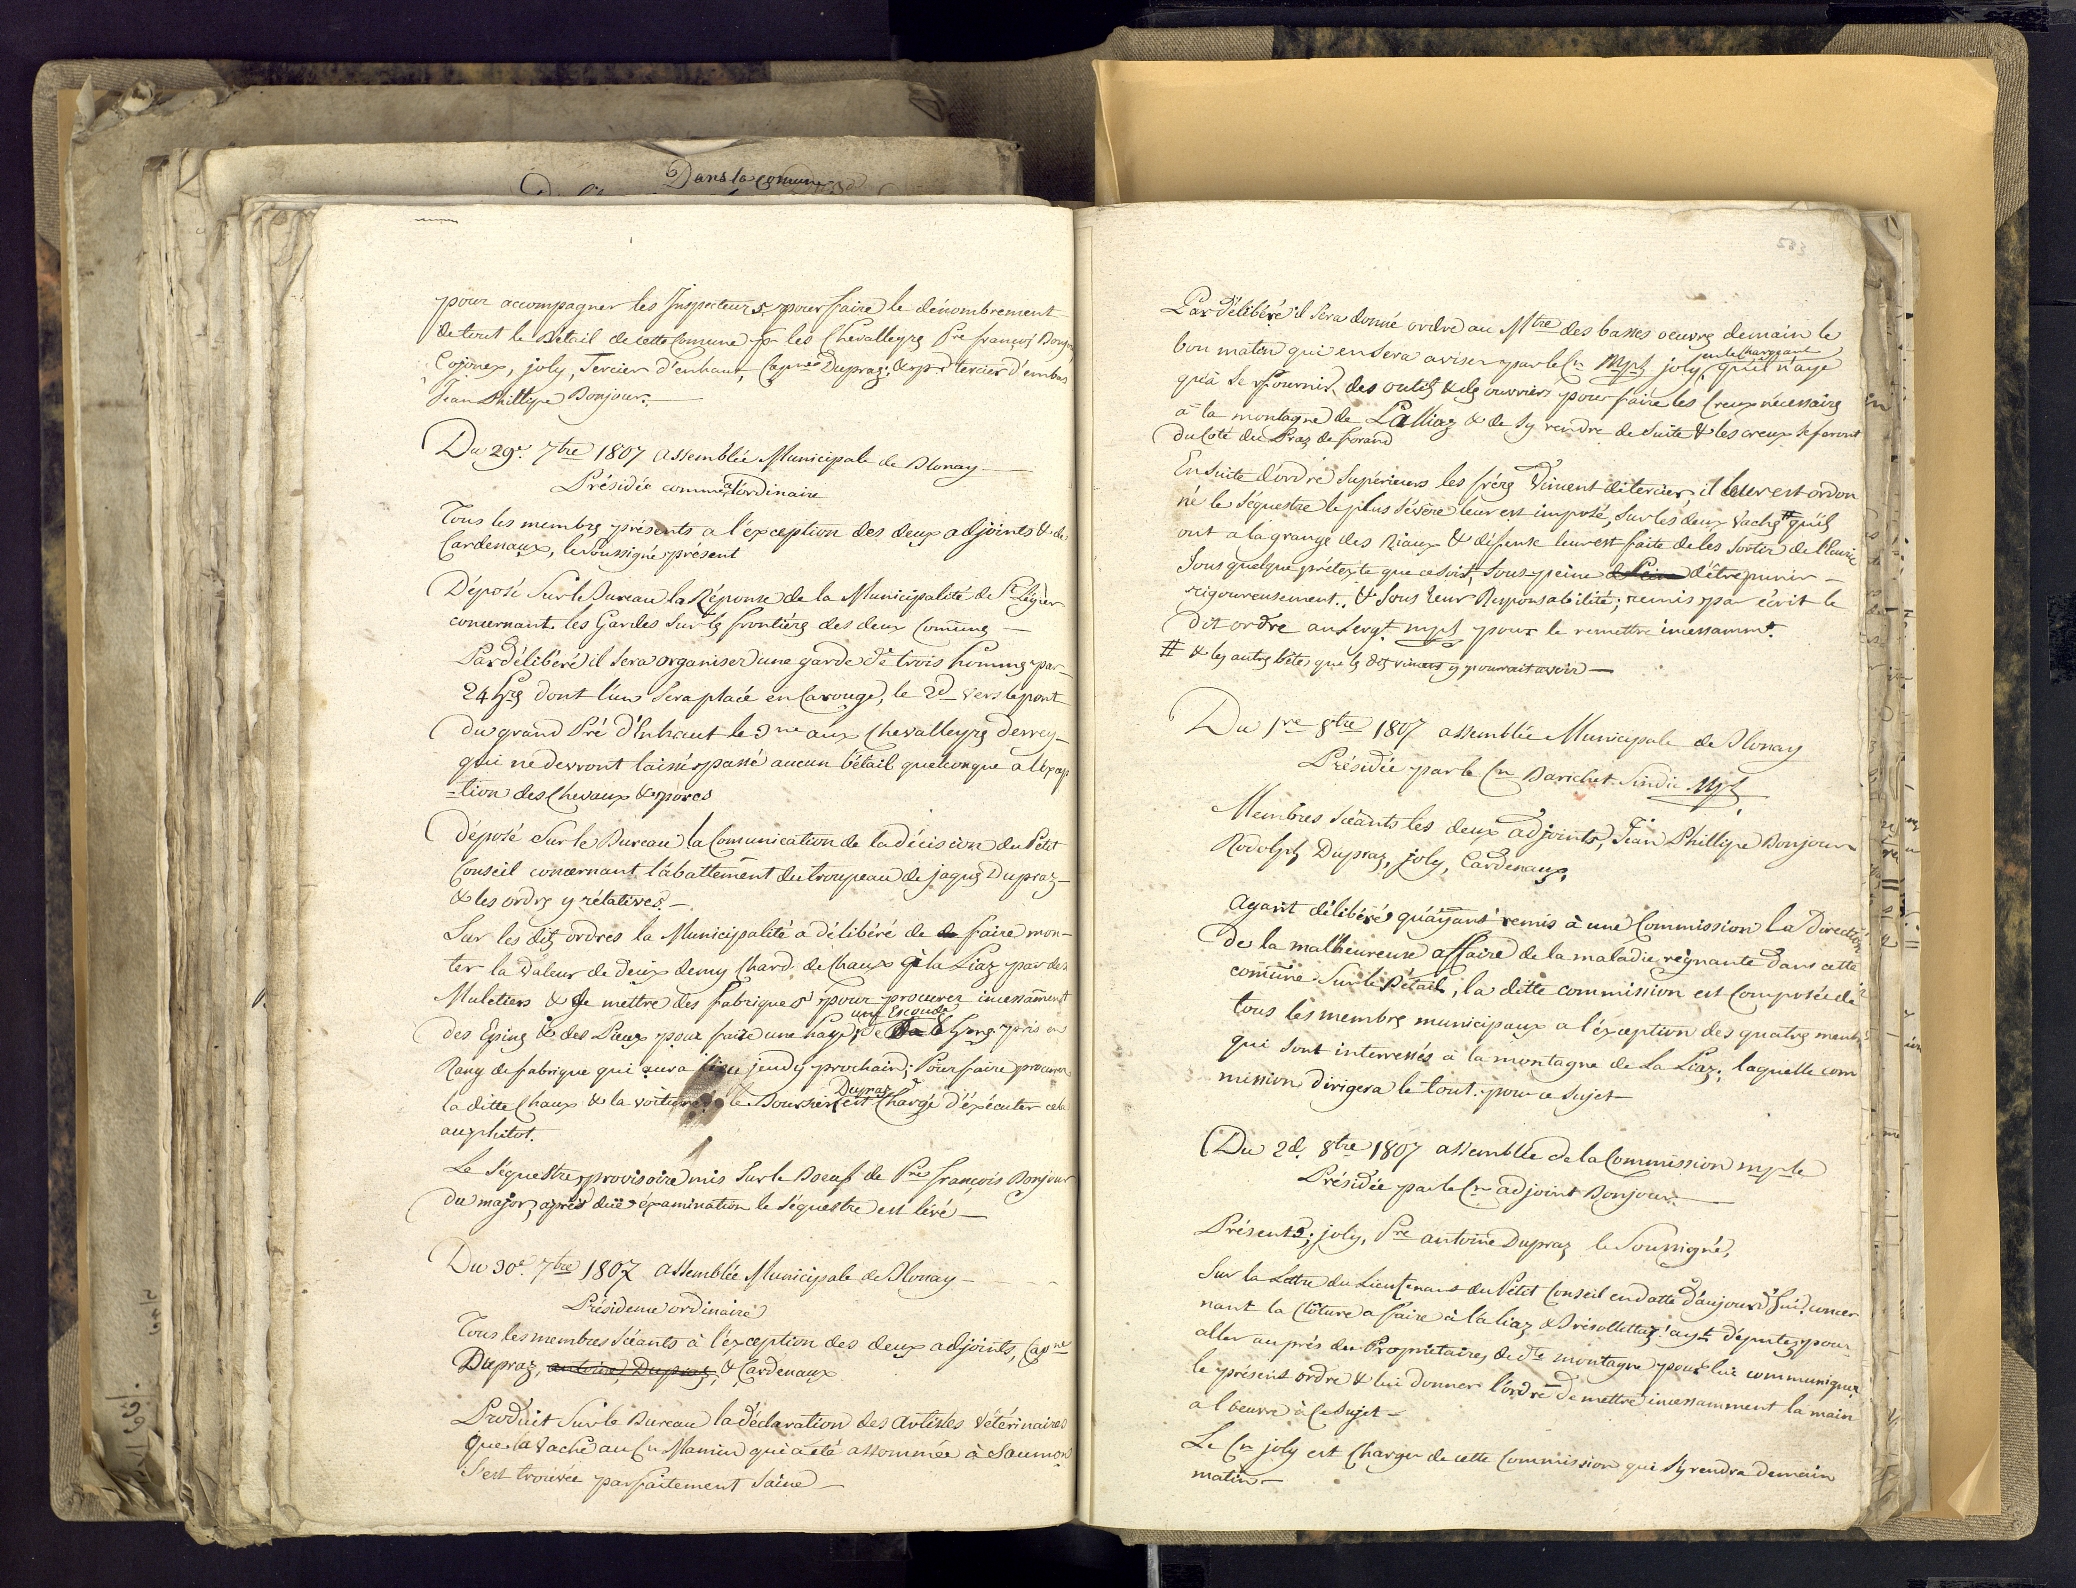 Dans la comune
pour accompagner les Inspecteurs pour faire le dénombrement
de tout le Bétail de cette Comune pr les Chevalleyrs Pre françois Bonjour
Cojonex, joly, Tercier d'enhaut, Capne Dupraz; & pr tercier d'embas
Jean Phillipe Bonjour.
Du 29e. 7bre 1807 assemblée Municipale de Blonay
Présidée comme a l'ordinaire
Tous les membrs présents a l'exception des deux adjoints & de
Cardenaux, le Soussigné présent
Déposé Sur le Bureau la Réponse de la Municipalité de St Légier
concernant les Gardes Sur ls frontiérs des deux Comuns
Par délibéré il Sera organiser d'une garde de trois homms par
24 hrs dont l'un Sera placé en Carouge, le 2d vers le pont
du grand Pré d'Enhaut le 3me aux Chevalleyrs derrey
qui ne devront laisser passé aucun bétail quelconque a l'excep
-tion des Chevaux & porcs
déposé Sur le Bureau la Comunication de la décision du Petit
Conseil concernant l'abattement du troupeau de jaqus Dupraz
& les ordrs y rélatives.
Sur les dits ordres la Municipalité a délibéré de de faire mon-
ter la valeur de deux demy Chard de Chaux à la Liaz par des
Muletiers & de mettre des fabriques pour procurer incessament
une Escoude
des Epins & des Pieux pour faire une haye, de 6 homs pris en
Rang de fabrique qui aura lieu jeudy prochain; Pour faire procurer
Dupraz
la ditte Chaux & la voiturer le Boursier est Chargé d'éxécuter cela
au plutot.
Le Séquestre provisoire mis Sur le Boeuf de Pre françois Bonjour
du major, après due éxamination le Séquestre est lévé
Du 30e. 7bre 1807 assemblée Municipale de Blonay
Présidence ordinaire
Tous les membres Séeants à l'exception des deux adjoints, Capne
Dupraz, antoine Dupraz, & Cardenaux
Produit Sur le Bureau la déclaration des Artistes Vétérinaires
que la Vache au Cn Mamin qui a été assommée à Saumon
s'est trouvée parfaitement Saine
382
Par délibéré il Sera donné ordre au Mtre des basses oeuvrs demain le
en le Chargeant
bon matin qui en Sera aviser par le Cn Mpl joly, qu'il n'aye
qu'à Se pfournir des outils & ds ouvriers pour faire les Creux nécessairs
à la montagne de Lalliaz & de Sy rendre de Suite & les creux Se feront
du Coté du Praz de forand
En Suite d'ordre Supérieurs les fréres Vincent dit tercier, il leur est ordon
né le Séquestre le plus Sévére leur est imposé, Sur les deux Vachs # qu'ils
ont a la grange des Riaux & défense leur est faite de les Sortir de l'Ecurie
Sous quelque prétexte que ce Soit, Sous peine de peine d'être punir
rigoureusement. & Sous leur Responsabilité; remis par écrit le
dit ordre au Sergt. mpl pour le remettre incessammt.
# & les autrs bêtes que ls dits vincent y pourrait avoir
Du 1re 8bre 1807 assemblée Municipale de Blonay
Présidée par le Cn Barichet Sindic Mpl
Membres Séeants les deux adjoints, Jean Phillipe Bonjour
Rodolph Dupraz, joly, Cardenaux,
Ayant délibéré qu'ayant remis à une Commission la Direction
de la malheureuse affaire de la maladie régnante dans cette
comune Sur le Bétail, la ditte commission est Composée de
tous les membrs municipaux a l'éxception des quatrs membrs
qui sont interressés à la montagne de La Liaz, laquelle com
mission dirigera le tout pour ce Sujet
Du 2d. 8bre 1807 assemblée de la Commission mple
Présidée par le Cn adjoint Bonjour
Présents; joly, Pre antoine Dupraz le Soussigné,
Sur la Lettre du Lieutenant du Pétit Conseil en datte d'aujourd'hui concer
nant la Clôture a faire à la liaz & Présollettaz: ayt députez pour
aller au prés du Propriétaires de dte montagne pour lui communiquer
le présent ordre & lui donner l'ordre de mettre incessamment la main
a l'oeuvre à ce Sujet
Le Cn joly est Charger de cette Commission qui Sy rendra demain
matin